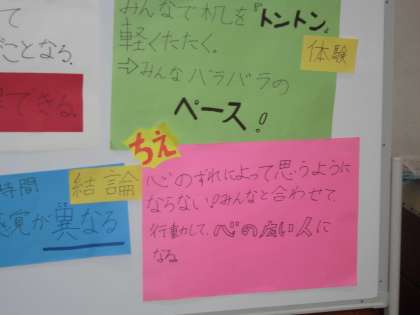 って
がことなる.
できる
みんなで机を『トントン』
軽くたたく。
⇒みんなバラバラの
ペース!
体験
ちえ
時間
感覚が異なる
結論
心のずれによって思うように
ならない!みんなと合わせて、
行動して、心の広い人に
なる